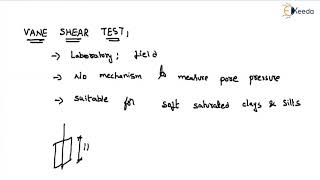 Ekeeda
VANE SHEAR TEST;
→ Laboratory; field
→ No mechanism to measure pore pressure
→ Suitable for soft saturated clays & silts
H